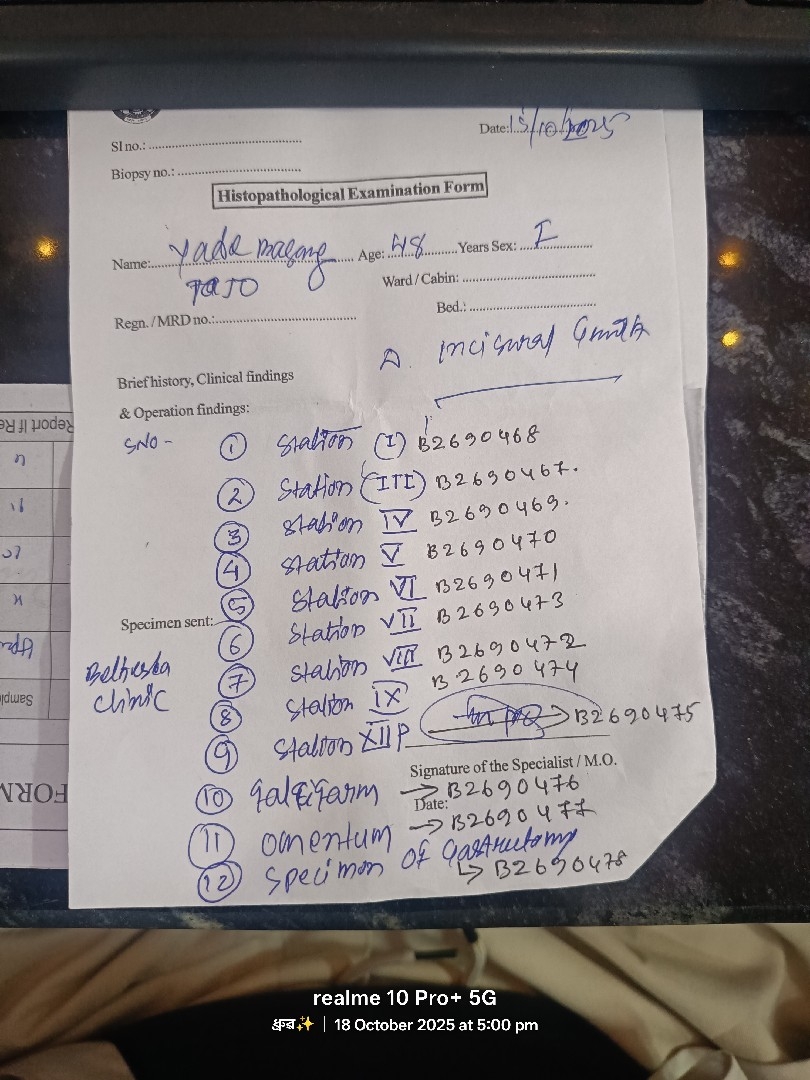 Date: 15/10/2025
Sl no.:
Biopsy no.:
Histopathological Examination Form
Name: Age: 48 Years Sex:
TaJo
Ward / Cabin:
Regn. / MRD no.:
Bed.:
Incisural
Brief history, Clinical findings
& Operation findings:
SNO - ① Station (I) B2690468
② Station (III) B2690467.
③ Station IV B2690469.
④ Station V B2690470
⑤ Station VI B2690471
Specimen sent: ⑥ Station VII B2690473
⑦ Station VIII B2690472
Clinic ⑧ Station IX B2690474
⑨ Station XII P → B2690475
Signature of the Specialist / M.O.
⑩ → B2690476
Date:
⑪ omentum → B2690477
⑫ specimen OF Gastructomy
↳ B2690478
Report If Re
Sample
FORM
realme 10 Pro+ 5G
ध्रुव✨ | 18 October 2025 at 5:00 pm